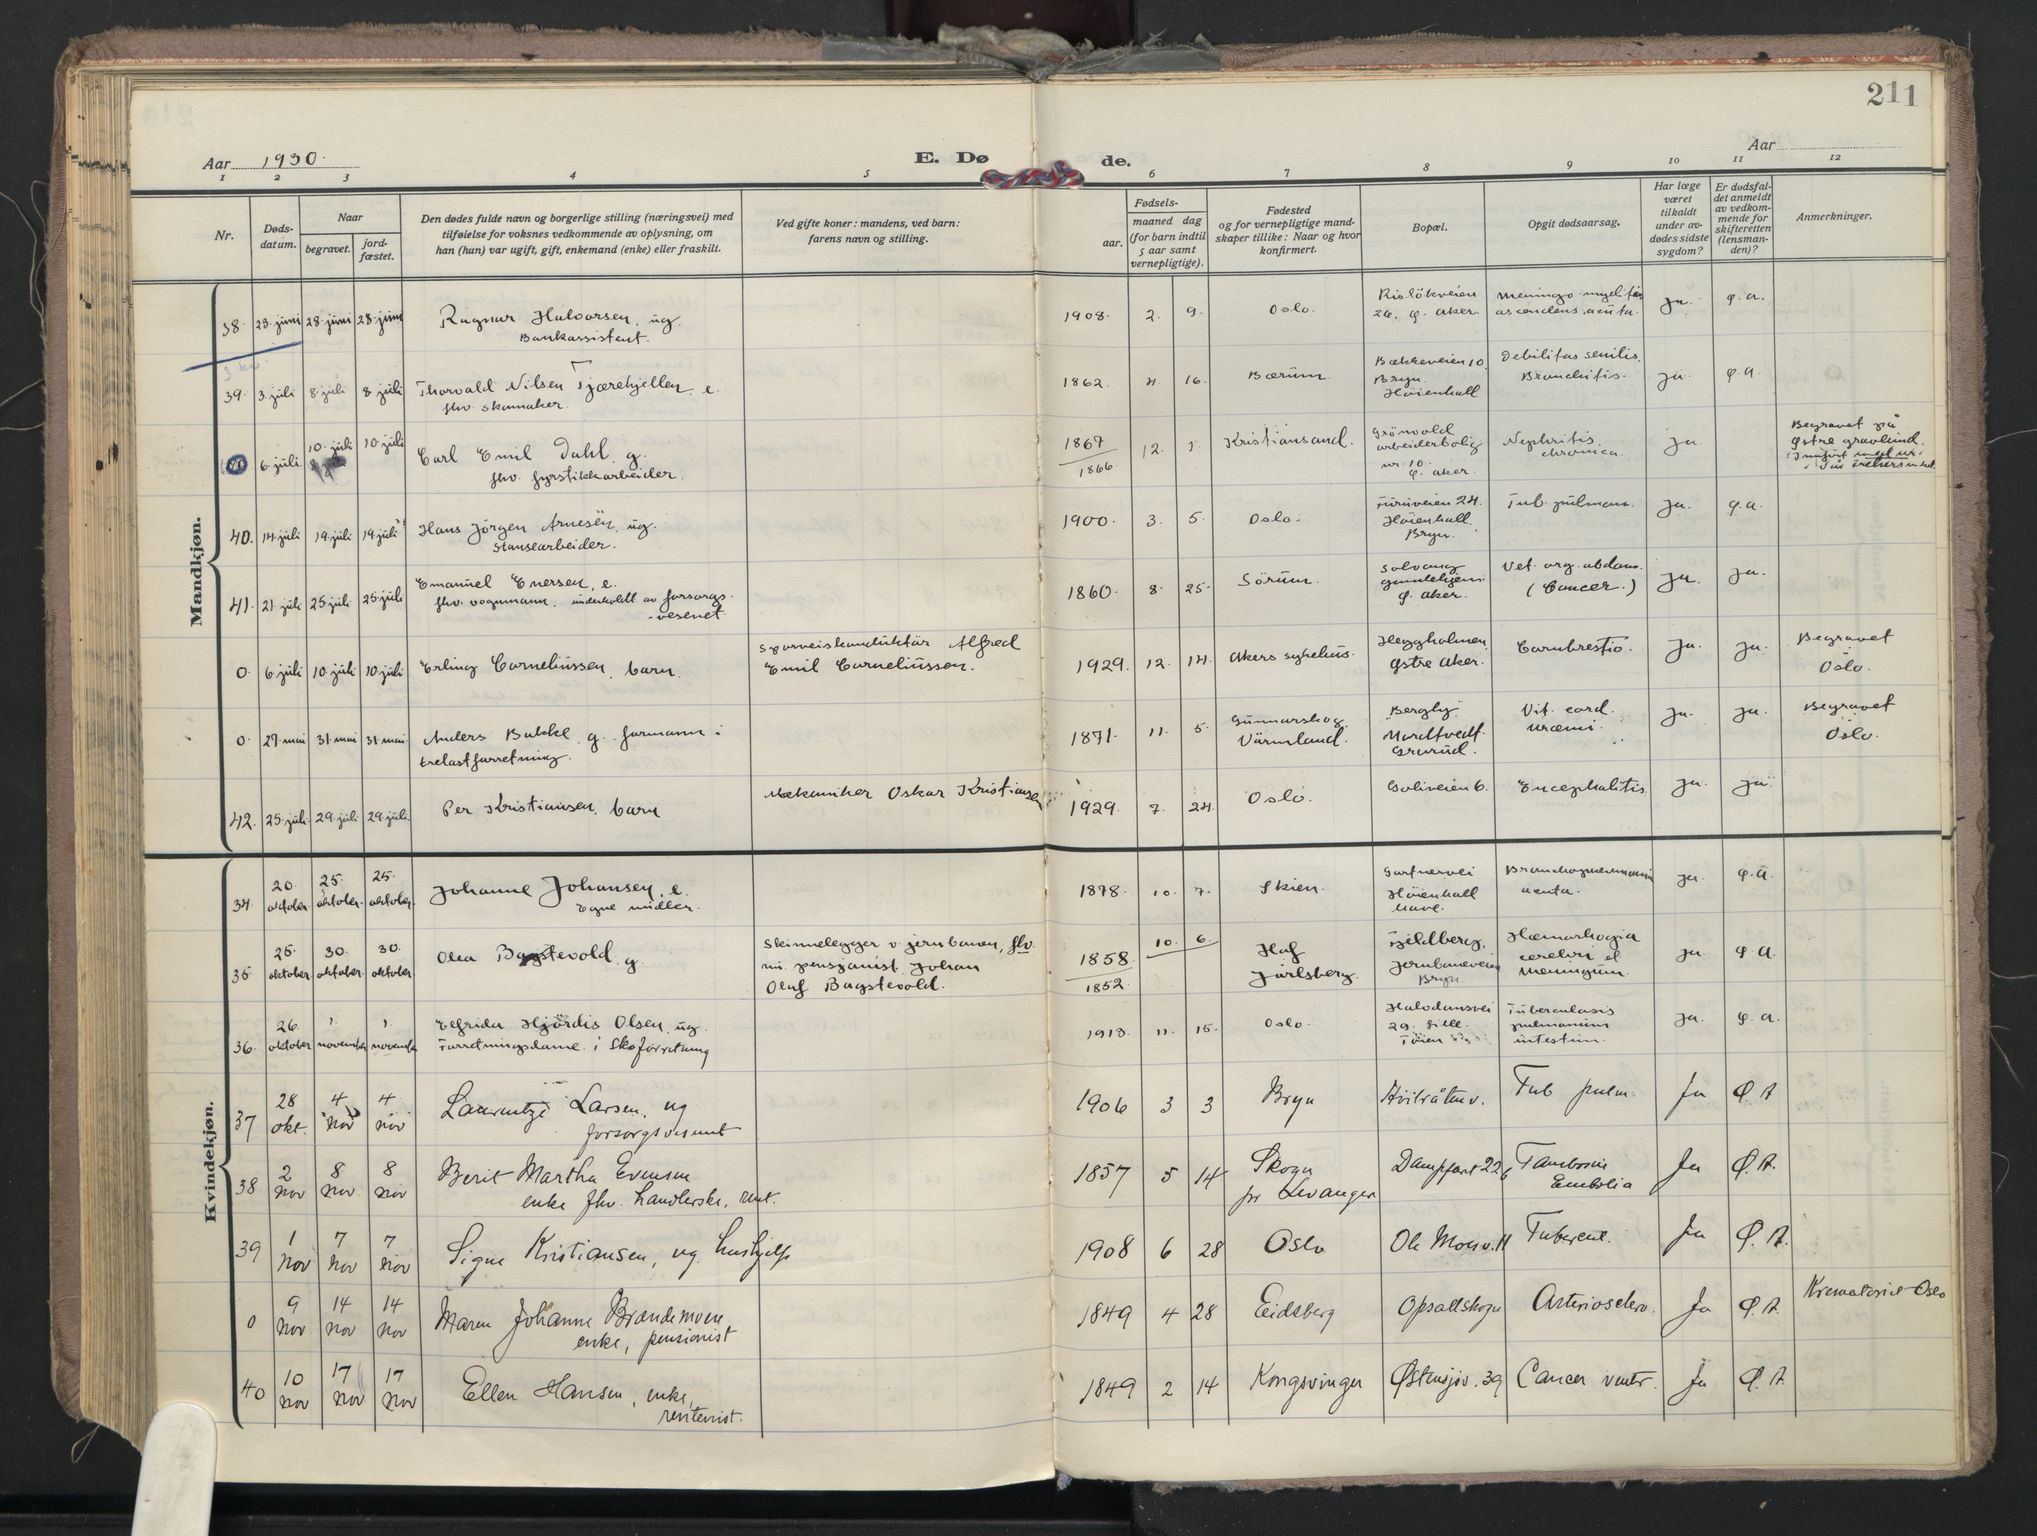 211
Aar 1930.
E. Dø de.
Aar
1 2 3 4 5 6 7 8 9 10 11 12
Nr.
Døds-
datum.
Naar
begravet.
jord-
fæstet.
Den dødes fulde navn og borgerlige stilling (næringsvei) med
tilføielse for voksnes vedkommende av oplysning, om
han (hun) var ugift, gift, enkemand (enke) eller fraskilt.
Ved gifte koner: mandens, ved barn:
farens navn og stilling.
Fødsels-
aar.
maaned dag
(for barn indtil
5 aar samt
vernepligtige).
Fødested
og for vernepligtige mand-
skaper tillike: Naar og hvor
konfirmert.
Bopæl.
Opgit dødsaarsag.
Har læge
været
tilkaldt
under av-
dødes sidste
sygdom?
Er dødsfal-
det anmeldt
av vedkom-
mende for
skifteretten
(lensman-
den)?
Anmerkninger.
Mandkjøn.
38. 23. juni 28. juni 28. juni Ragnar Halvorsen, ug.
Bankassistent.
1908. 2. 9. Oslo. Risløkveien
26, Ø. Aker.
Meningo-myelitis
ascendens acuta.
Ja. Ø.A.
39. 3. juli 8. juli 8. juli Thorvald Nilsen Tjærehjellen, e.
fhv. skomaker.
1862 4. 16. Bærum. Bækkeveien 10,
Bryn.
Høienhall
Debilitas senilis.
Bronchitis.
Ja. Ø.A.
6. juli 10. juli 10. juli Carl Emil Dahl, g.
fhv. fyrstikkarbeider.
1867
1866
12. 1. Kristiansand. Grönvold
arbeiderbolig
nr. 10.
Ø. Aker.
Nephritis
chronica.
Ja
Begravet på
Østre gravlund.
40. 14. juli 19. juli 19. juli Hans Jörgen Arnesen, ug.
Stansearbeider.
1900. 3. 5. Oslo. Furuveien 24.
Høienhall.
Bryn.
Tub. pulmon. Ja. Ø.A.
41. 21. juli 25. juli 25. juli Emanuel Enersen, e.
fhv. vognmann. underholdt av forsorgs-
vesenet.
1860. 8. 25. Sørum. Solvang
gamlehjem
Ø. Aker.
Vet. org. abdom.
(Cancer.)
Ja. Ja.
0. 6. juli 10. juli 10. juli Erling Corneliussen, barn.
Sporveiskonduktør Alfred
Emil Corneliussen.
1929. 12. 14. Akers sykehus. Heggholmen,
Østre Aker.
Combustio. Ja. Ja. Begravet
Oslo.
0. 27. mai 31. mai 31. mai Anders Bakke, g. formann i
trelastforretning.
1871. 11. 5. Gunnarskog.
Värmland.
"Bergly"
Nordtvedt
Grorud.
Vit. cord.
uræmi.
Ja. Ja. Begravet
Oslo.
42. 25. juli 29. juli 29. juli Per Kristiansen, barn
Mekaniker Oskar Kristiansen
1929. 7. 24. Oslo. Soliveien 6. Encephalitis. Ja Ja
Kvindekjøn.
34. 20.
oktober
25.
oktober.
25.
oktober
Johanne Johansen, e.
Egne midler.
1878. 10. 7. Skien. Gartnervei
Høienhall
have.
Bronchopneumonia
acuta.
Ja. Ø.A.
35 25.
oktober
30.
oktober
30.
oktober
Olea Bogstevold, g.
Skinnelegger v. jernbanen, fhv.
nu pensjonist Johan
Olaf Bogstevold.
1858
1852.
10. 6. Hof
Jarlsberg.
Fjeldberg,
Jernbaneveien
Bryn.
Hæmorhagia
cerebri et
Meningum.
Ja. Ø.A.
36. 26.
oktober
1.
november
1.
november
Elfrida Hjördis Olsen, ug.
Forretningsdame i Skoforretning
1913. 11. 15. Oslo. Halvdansvei
29.
Tøien
Tuberculosis
pulmonum
intestin.
Ja. Ø.A.
37 28
okt.
4
nov
4
nov
Laurentze Larsen, ug
forsorgsvesenet
1906 3 3 Bryn Hvilråtenv. Tub pulm. Ja Ø.A
38 2
nov
8
nov.
8
nov
Berit Martha Evensen
enke fhv. handlerske,
1857 5 14 Skogn
pr Levanger
Dampfart 22 Trombose
Embolia
Ja Ø.A.
39 1
nov
7
nov
7
nov
Signe Kristiansen, ug. hushjelp
1908 6 28 Oslo Ole Moesv. 11 Tubercul. Ja Ø.A.
0 9
nov
14
nov
14
nov
Maren Johanne Brændemoen
enke, pensionist
1849 4 28 Eidsberg Opsalskogn Arterioscler. Ja Ø.A. Krematoriet Oslo
40 10
nov
17
nov
17
nov
Ellen Hansen, enke,
rentenist.
1849 2 14 Kongsvinger Østensjøv. 39 Cancer ventr. Ja Ø.A.